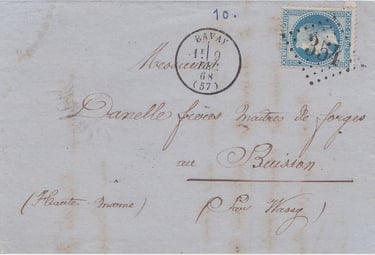 10.
BAVAY
68
(57)
Messieurs
Danelle frères Maîtres de forges
au
Buisson
(Haute-Marne) (par Wassy)